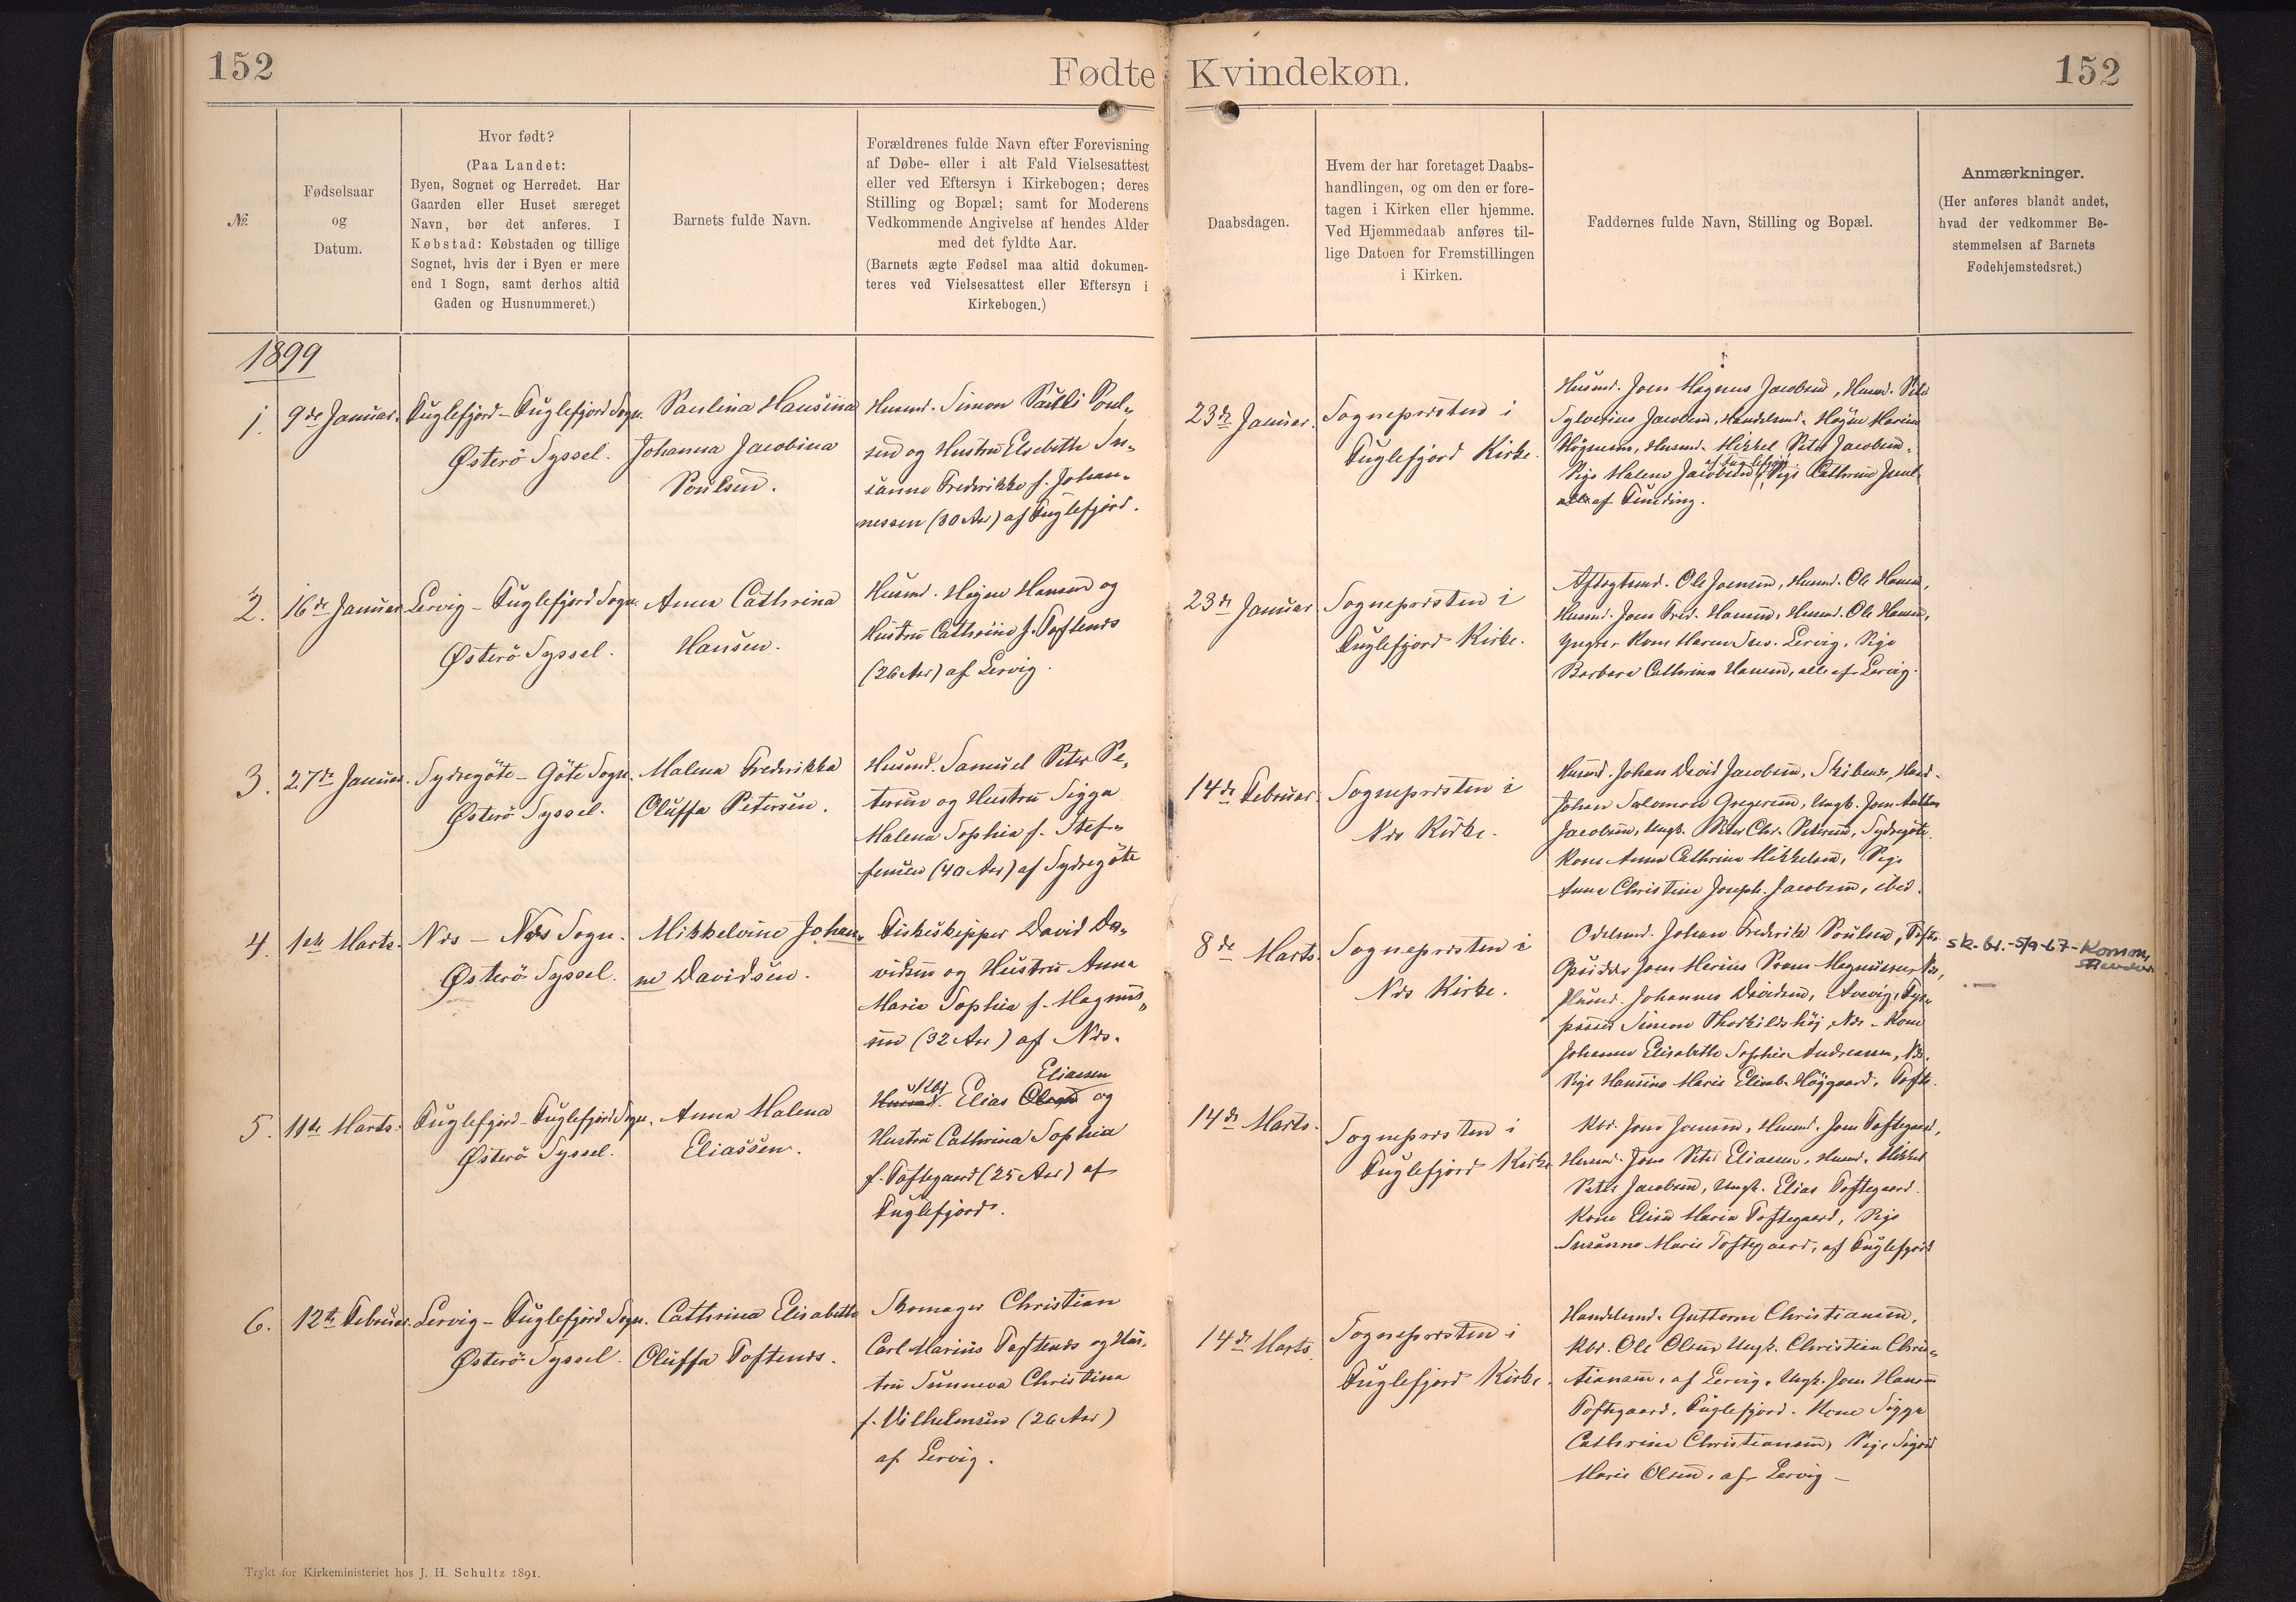 152
Fødte Kvindekøn.
152
№
Fødselsaar
og
Datum.
Hvor født?
(Paa Landet:
Byen, Sognet og Herredet. Har
Gaarden eller Huset særeget
Navn, bør det anføres. I
Købstad: Købstaden og tillige
Sognet, hvis der i Byen er mere
end 1 Sogn, samt derhos altid
Gaden og Husnummeret.)
Barnets fulde Navn.
Forældrenes fulde Navn efter Forevisning
af Døbe- eller i alt Fald Vielsesattest
eller ved Eftersyn i Kirkebogen; deres
Stilling og Bopæl; samt for Moderens
Vedkommende Angivelse af hendes Alder
med det fyldte Aar.
(Barnets ægte Fødsel maa altid dokumen-
teres ved Vielsesattest eller Eftersyn i
Kirkebogen.)
Daabsdagen.
Hvem der har foretaget Daabs-
handlingen, og om den er fore-
tagen i Kirken eller hjemme.
Ved Hjemmedaab anføres til-
lige Datoen for Fremstillingen
i Kirken.
Faddernes fulde Navn, Stilling og Bopæl.
Anmærkninger.
(Her anføres blandt andet,
hvad der vedkommer Be-
stemmelsen af Barnets
Fødehjemstedsret.)
1899
1.
9de Januar.
Fuglefjord - Fuglefjord Sogn.
Østerö Syssel.
Paulina Hansina
Johanna Jacobina
Poulsen.
Husmd. Simon Poul-
sen og Hustru Elsebeth Su-
sanne Frederikke f. Johan-
nessen (30 Aar) af Fuglefjord.
23de Januar.
Sognepræsten i
Fuglefjord Kirke.
Husmd. Joen Magnus Jacobsen, Husmd.
Sylverius Jacobsen, Handelsmd. Högne
Högnesen, Husmd. Mikkel Peter Jacobsen,
Pige Malene Jacobsen af Fuglefjord, Pige Cathrine
af Funding.
2.
16de Januar
Lervig - Fuglefjord Sogn.
Østerö Syssel.
Anna Cathrina
Hansen.
Husmd. Högne Hansen og
Hustru Cathrine f. Toftenæs
(26 Aar) af Lervig.
23de Januar
Sognepræsten i
Fuglefjord Kirke.
Aftægtsmd. Ole Joensen, Husmd. Ole Hansen,
Husmd. Joen Fred. Hansen, Husmd. Ole Hansen,
yngre, Kone Lervig, Pige
Barbara Cathrina Hansen, alle af Lervig.
3.
27de Januar.
Sydregöte - Göte Sogn.
Østerö Syssel.
Malena Frederikka
Oluffa Petersen.
Husmd. Samuel Peter Pe-
tersen og Hustru Sigga
Malena Sophia f. Stef-
fensen (40 Aar) af Sydregöte
14de Februar.
Sognepræsten i
Næs Kirke.
Husmd. Johan David Jacobsen,
Johan Salomon Gregersen, Ungk. Joen
Jacobsen, Ungk. Peter Chr. Petersen, Sydregöte.
Kone Anna Cathrine Mikkelsen, Pige
Anna Christine Joseph. Jacobsen, ibid.
4.
1ste Marts.
Næs - Næs Sogn.
Østerö Syssel.
Mikkeline Johan-
ne Davidsen.
Fiskeskipper David Da-
vidsen og Hustru Anna
Maria Sophia f. Magnus-
sen (32 Aar) af Næs.
8de Marts.
Sognepræsten i
Næs Kirke.
Odelsmd. Johan Frederik Poulsen, Tofte
Joen Marius Magnussen, Næs,
Johannes Davidsen,
Simon Thorkildshöj, Næs. Kone
Johanne Elisabeth Sophie Andreasen, Næs.
Pige Hansine Marie Elisab. Höjgaard, Tofte.
sk. br. - 5/9-67 -
5.
11te Marts.
Fuglefjord - Fuglefjord Sogn.
Østerö Syssel.
Anna Malena
Eliassen.
Kbr. Eliassen
Husmd. Elias Olsen og
Hustru Cathrina Sophia
f. Toftegaard (25 Aar) af
Fuglefjord.
14de Marts.
Sognepræsten i
Fuglefjord Kirke
Kbr. Joen Joensen, Husmd. Joen Toftegaard,
Husmd. Joen Peter Eliasen, Husmd. Mikkel
Peter Jacobsen, Ungk. Elias Toftegaard.
Kone Elisa Maria Toftegaard, Pige
Susanne Marie Toftegaard, af Fuglefjord
6.
12te Februar.
Lervig - Fuglefjord Sogn.
Østerö Syssel.
Cathrina Elisabetta
Oluffa Toftenæs.
Skomager Christian
Carl Marius Toftenæs og Hus-
tru Sunneva Christina
f. Vilhelmsen (26 Aar)
af Lervig.
14de Marts.
Sognepræsten i
Fuglefjord Kirke.
Handelsmd. Guttorm Christiansen,
Kbr. Ole Olsen, Ungk. Christian Chris-
tiansen, af Lervig, Ungk. Joen Hansen
Toftegaard, Fuglefjord. Kone Sigga
Cathrina Christiansen, Pige Sigrid
Marie Olsen, af Lervig -
Trykt for Kirkeministeriet hos J. H. Schultz 1891.